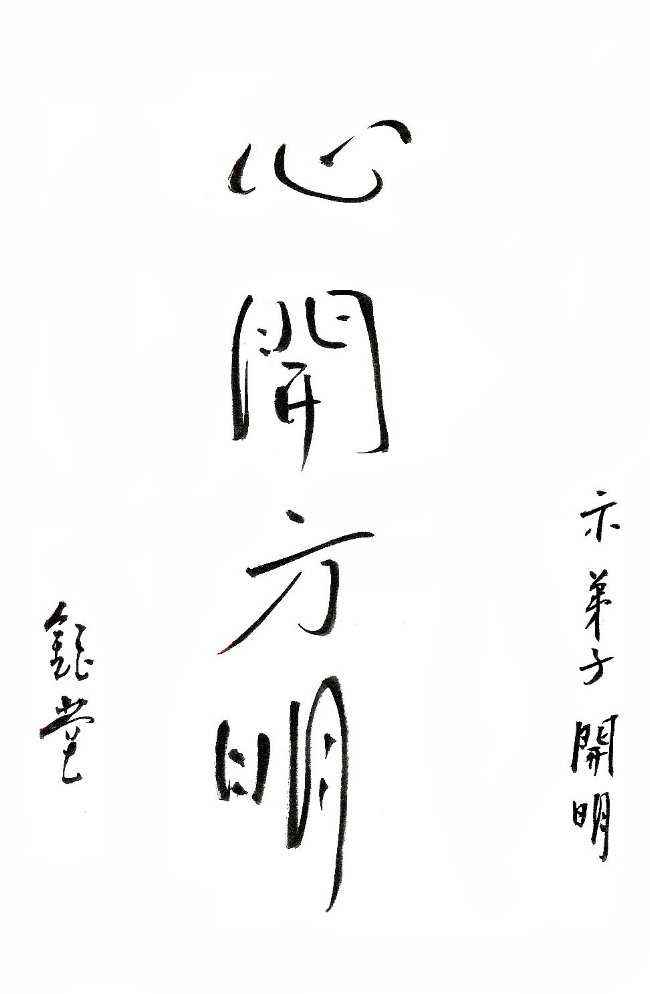 示弟子開明
心開方明